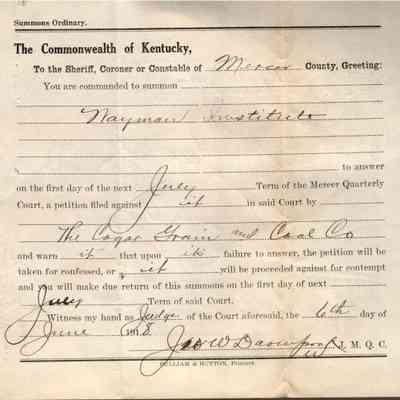 Summons Ordinary.
The Commonwealth of Kentucky,
To the Sheriff, Coroner or Constable of Mercer County, Greeting:
You are commanded to summon
Wayman Institute
to answer
on the first day of the next July Term of the Mercer Quarterly
Court, a petition filed against it in said Court by
The Cogar Grain and Coal Co
and warn it that upon its failure to answer, the petition will be
taken for confessed, or it will be proceeded against for contempt
and you will make due return of this summons on the first day of next
July Term of said Court.
Witness my hand as Judge of the Court aforesaid, the 6th day of
June 1918.
W Davenport J. M. Q. C.
& HUTTON, Printers.